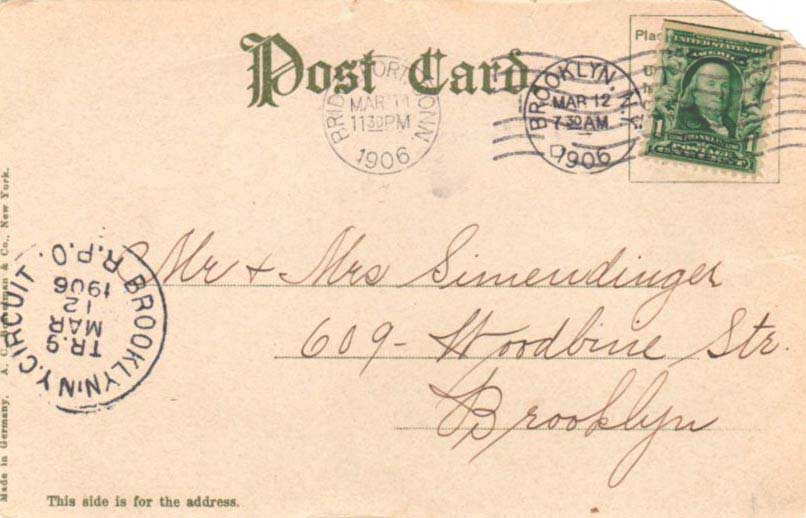 Post Card
BRIDGEPORT CONN
MAR 11
1130PM
1906
BROOKLYN, N.Y.
MAR 12
7 30 AM
D
1906
Plac
UNITED STATES OF
AMERICA
1
1
Mr + Mrs Simendinger
609 - Woodbine Str.
Brooklyn
BROOKLYN, N.Y. CIRCUIT R.P.O.
TR. 9
MAR
12
1906
Made in Germany. A. C. & Co., New York.
This side is for the address.